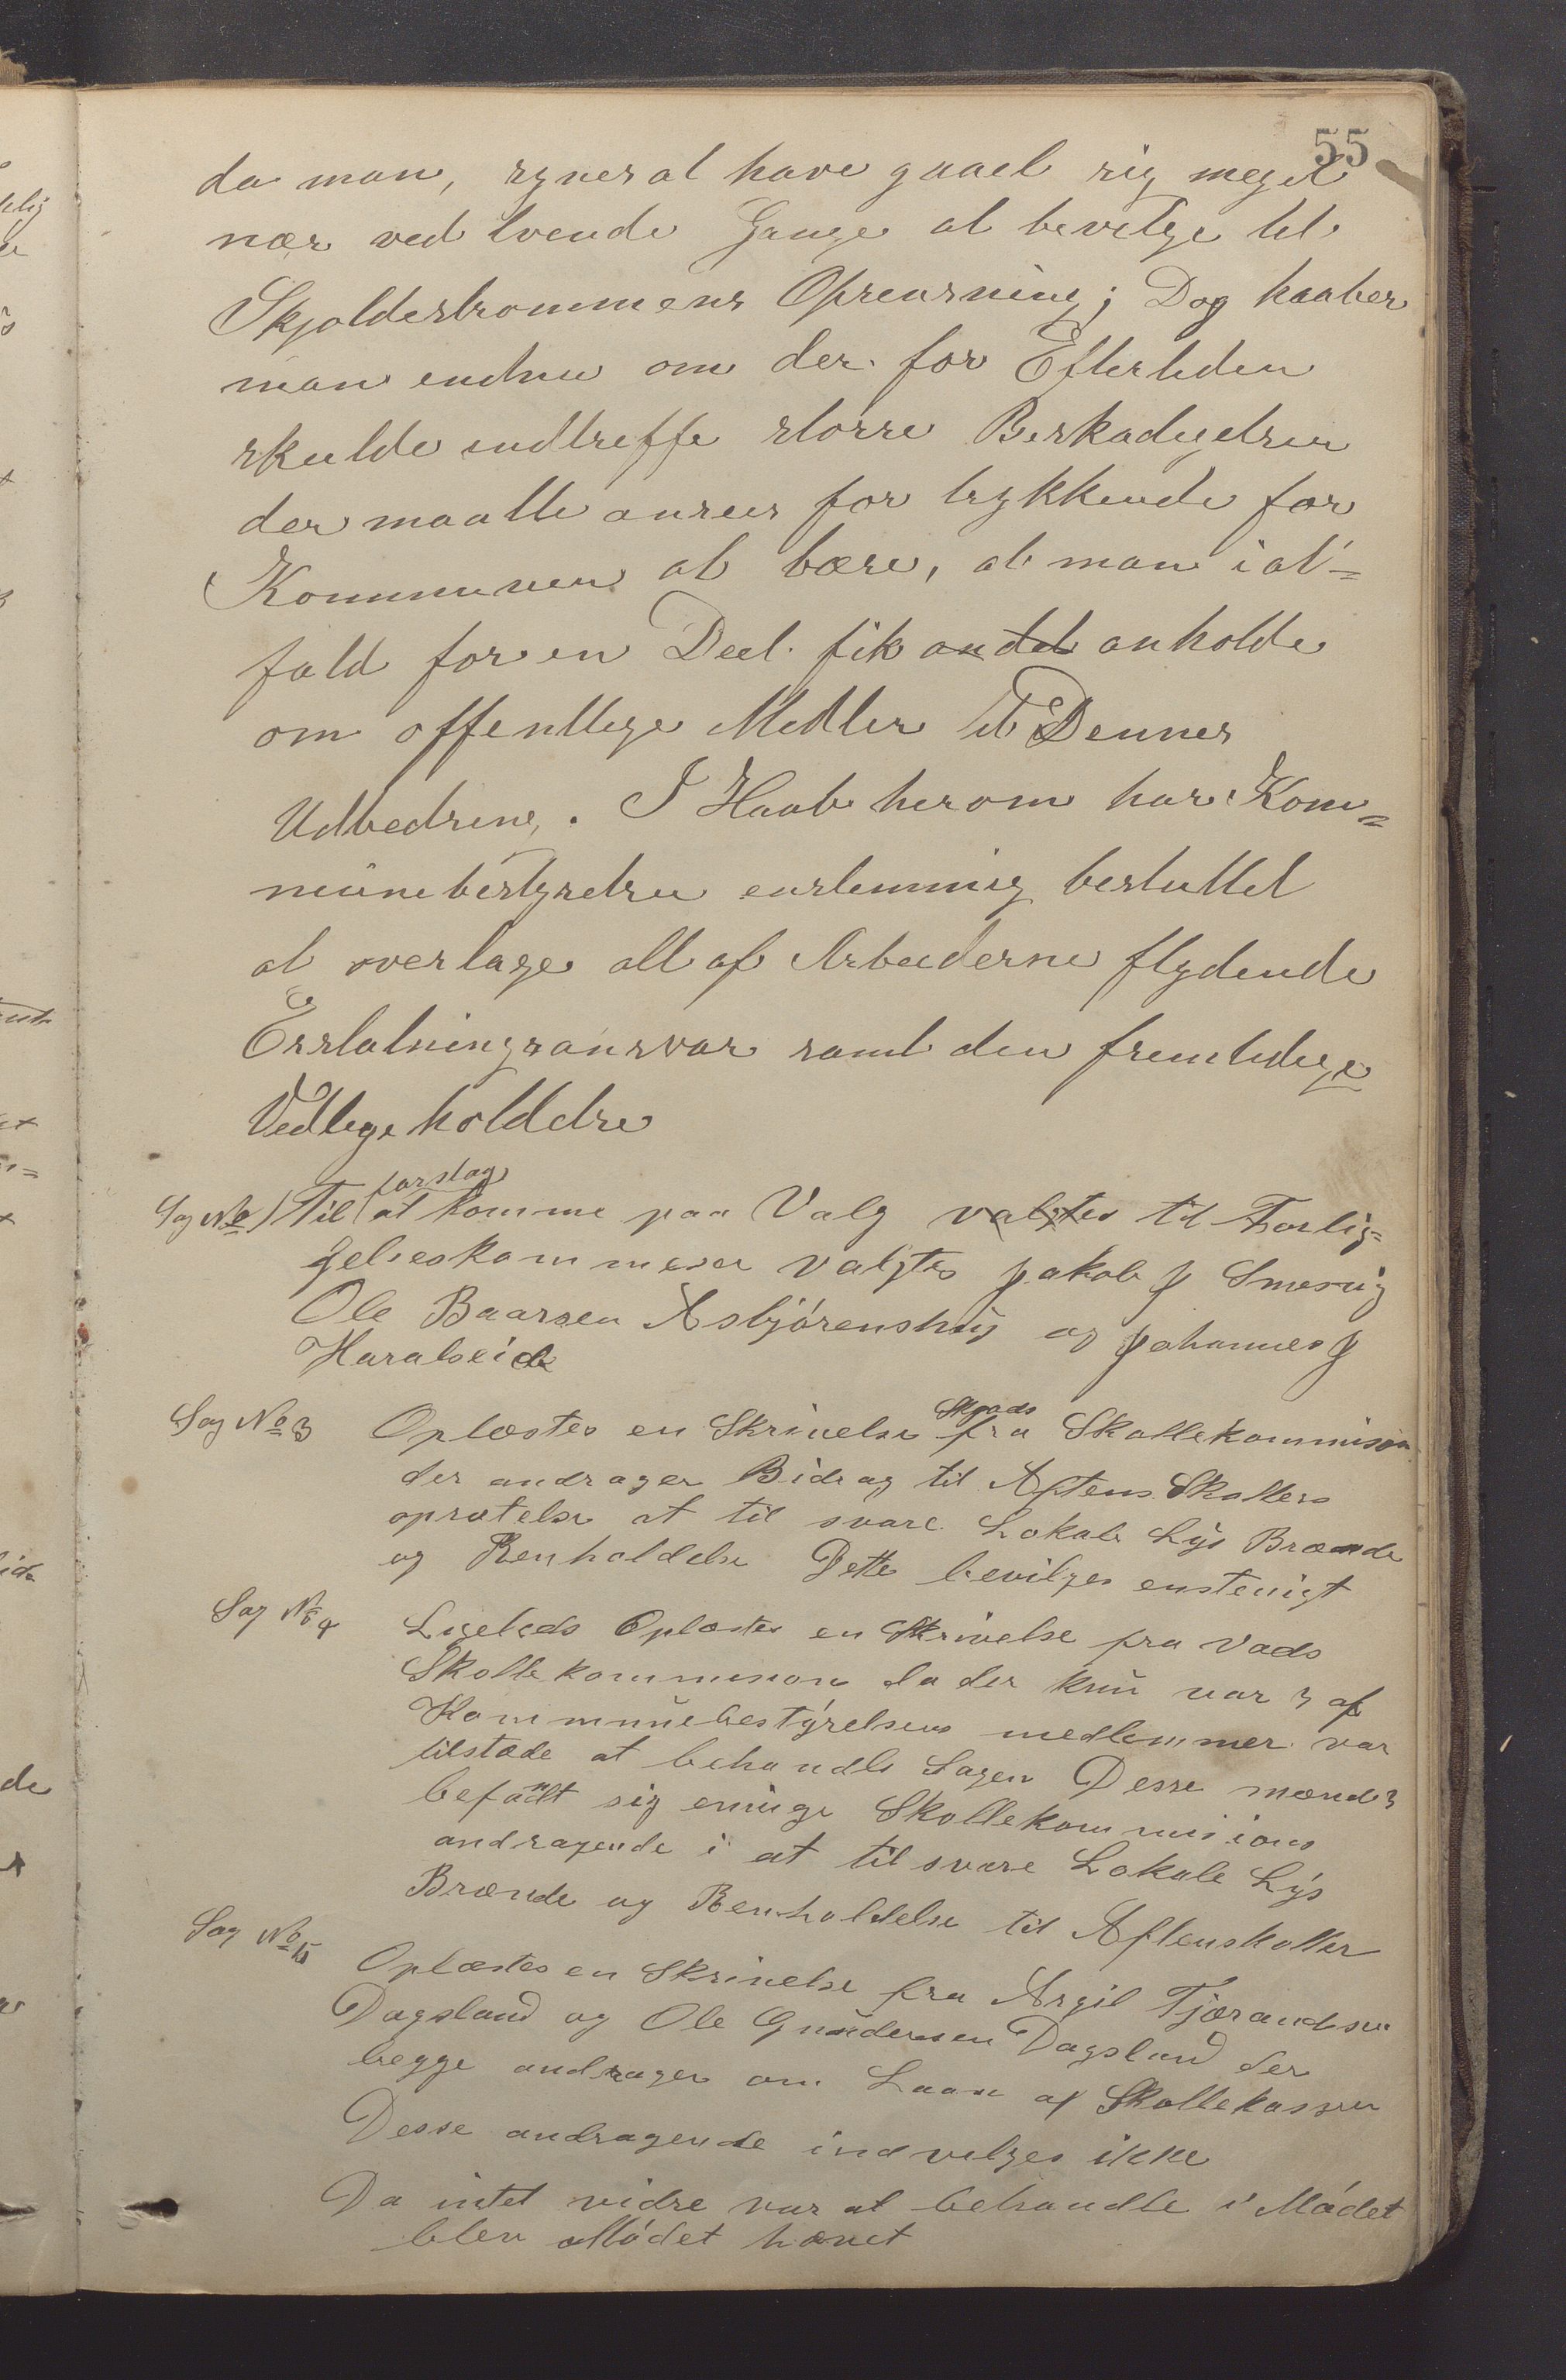 55
da man, synes at have gaaet sig meget
nær ved tvende Gange at bevilge til
Skjoldestrømmens Oprensning; Dog haaber
man endnu om der for Eftertiden
skulde indtreffe større Beskadigelser
der maatte ansees for trykkende for
Kommunen at bære, at man ial=
fald for en Deel fik andd anholde
om offentlige Midler til Dennes
Udbedring. I Haab herom har Kom=
munebestyrelsen enstemmig besluttet
at overtage alt af Arbeiderne flydende
Erstatningsansvar samt den fremtidige
Vedligeholdelse
forslag
Sag No 2 Til at komme paa Valg valgtes til Forlig=
gelseskommeser valgtes Jakob J Smevig
Ole Baarsen Asbjørenshus og Johannes J
Haraldseide
Skjolds
Sag No 3 Oplæstes en Skrivelse fra Skollekommision
der andrager Bidrag til Aftens Skollers
oprætelse at til svare Lokale Lys Brænde
og Renholdelse Dette bevilges enstemigt
Sag No 4 Ligeleds Oplæstes en Skrivelse fra Vads
Skollekommision da der kun var 3 af
Kommunebestyrelsens medlemmer var
tilstæde at behandle Sagen Desse mænd 3
befandt sig eninge Skollekommisions
andragende i at tilsvare Lokale Lys
Brænde og Renholdelse til Aftenskoller
Sag No 5 Oplæstes en Skrivelse fra Argil Tjærandsen
Dagsland og Ole Gundersen Dagsland der
begge andrager om Laan af Skollekassen
Desse andragende indvelges ikke
Da intet vidre var at behandle i Mødet
blev Mødet hævet